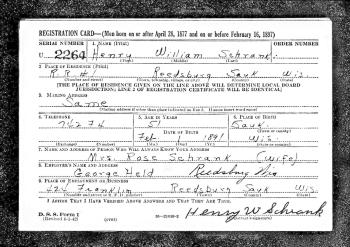 REGISTRATION CARD—(Men born on or after April 28, 1877 and on or before February 16, 1897)
SERIAL NUMBER 1. NAME (Print) ORDER NUMBER
U 2264 Henry William Schrank
(First) (Middle) (Last)
2. PLACE OF RESIDENCE (Print)
R.R. #1 Reedsburg Sauk Wis.
(Number and street) (Town, township, village, or city) (County) (State)
[THE PLACE OF RESIDENCE GIVEN ON THE LINE ABOVE WILL DETERMINE LOCAL BOARD
JURISDICTION; LINE 2 OF REGISTRATION CERTIFICATE WILL BE IDENTICAL]
3. MAILING ADDRESS
Same
[Mailing address if other than place indicated on line 2. If same insert word same]
4. TELEPHONE 5. AGE IN YEARS 6. PLACE OF BIRTH
51 Sauk
DATE OF BIRTH (Town or county)
Feb 1891 Wis.
(Exchange) (Number) (Mo.) (Day) (Yr.) (State or country)
7. NAME AND ADDRESS OF PERSON WHO WILL ALWAYS KNOW YOUR ADDRESS
Mrs. Rose Schrank (Wife)
8. EMPLOYER'S NAME AND ADDRESS
George Held Reedsburg Wis
9. PLACE OF EMPLOYMENT OR BUSINESS
424 Franklin Reedsburg Sauk Wis.
(Number and street or R. F. D. number) (Town) (County) (State)
I AFFIRM THAT I HAVE VERIFIED ABOVE ANSWERS AND THAT THEY ARE TRUE.
D. S. S. Form 1
(Revised 4-1-42) (over)
Henry W Schrank